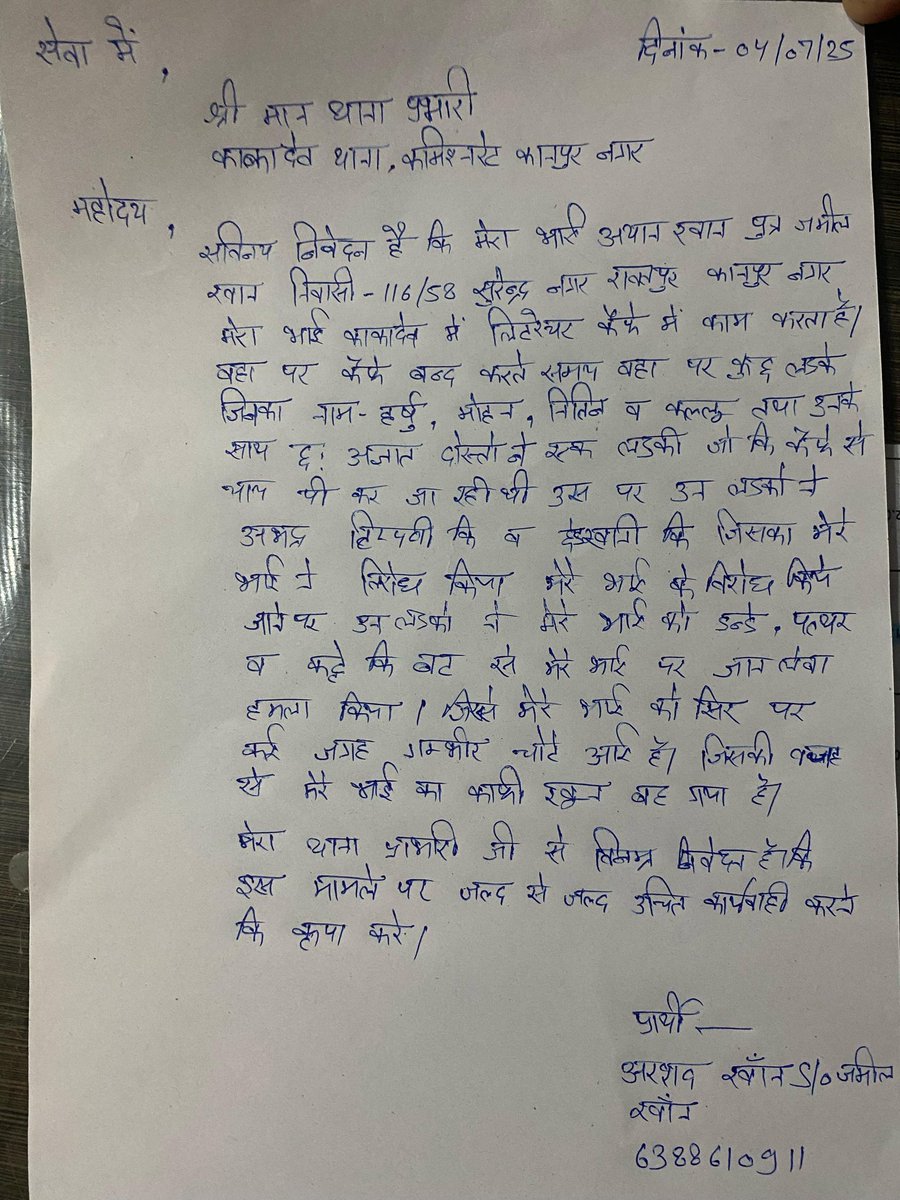 सेवा में,
दिनांक - 04/07/25
श्री मान थाना प्रभारी
काकादेव थाना, कमिश्नरेट कानपुर नगर
महोदय,
सविनय निवेदन है कि मेरा भाई अयान खान पुत्र जमील
खान निवासी - 116/58 सुरेन्द्र नगर रावतपुर कानपुर नगर
मेरा भाई काकादेव में लिटरेचर कैफे में काम करता है।
वहा पर कैफे बन्द करते समय वहा पर कुछ लडके
जिनका नाम - हर्षु, मोहन, नितिन व कल्लू तथा उनके
साथ छ: अज्ञात दोस्तो ने एक लडकी जो कि कैफे से
चाय पी कर जा रही थी उस पर उन लडको ने
अभद्र टिप्पणी कि व छेडखानी कि जिसका मेरे
भाई ने विरोध किया मेरे भाई के विरोध किये
जाने पर उन लडको ने मेरे भाई को डन्डे, पत्थर
व कट्टे कि बट से मेरे भाई पर जान लेवा
हमला किया। जिस्से मेरे भाई को सिर पर
कई जगह गम्भीर चोटे आई है। जिसकी वजह
से मेरे भाई का काफी खून बह गया है।
मेरा थाना प्रभारी जी से विनम्र निवेदन है। कि
इस मामले पर जल्द से जल्द उचित कार्यवाही करने
कि कृपा करे।
प्रार्थी —
अरशद खाँन S/o जमील
खाँन
6388610911